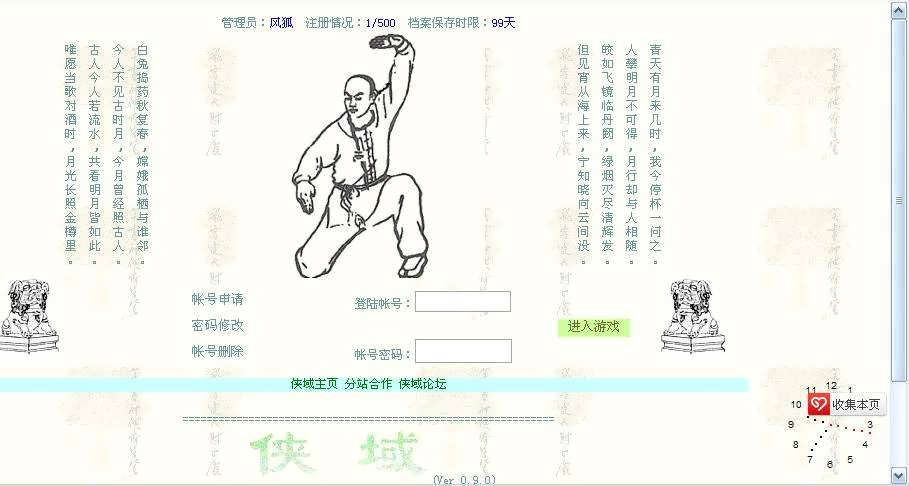 管理员：风狐 注册情况：1/500 档案保存时限：99天
青天有月来几时，我今停杯一问之。
人攀明月不可得，月行却与人相随。
皎如飞镜临丹阙，绿烟灭尽清辉发。
但见宵从海上来，宁知晓向云间没。
白兔捣药秋复春，嫦娥孤栖与谁邻。
今人不见古时月，今月曾经照古人。
古人今人若流水，共看明月皆如此。
唯愿当歌对酒时，月光长照金樽里。
帐号申请
登陆帐号：
密码修改
进入游戏
帐号删除
帐号密码：
侠域主页 分站合作 侠域论坛
侠 域
(Ver 0.9.0)
收集本页
11 12 1
10
9 3
8 4
7 6 5